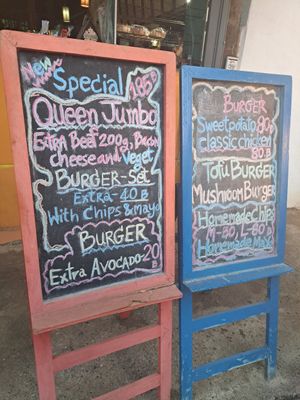 New Special 195฿
Queen Jumbo
Extra Beef 200g, Bacon
cheese and Veget
Burger-Set
Extra-40 B
With Chips & Mayo
Burger
Extra Avocado-20 B
Burger
Sweet potato 80
classic chicken
80 B
Tofu Burger
Mushroom Burger
Homemade Chips
M-50, L-80 B
Homemade Mayo